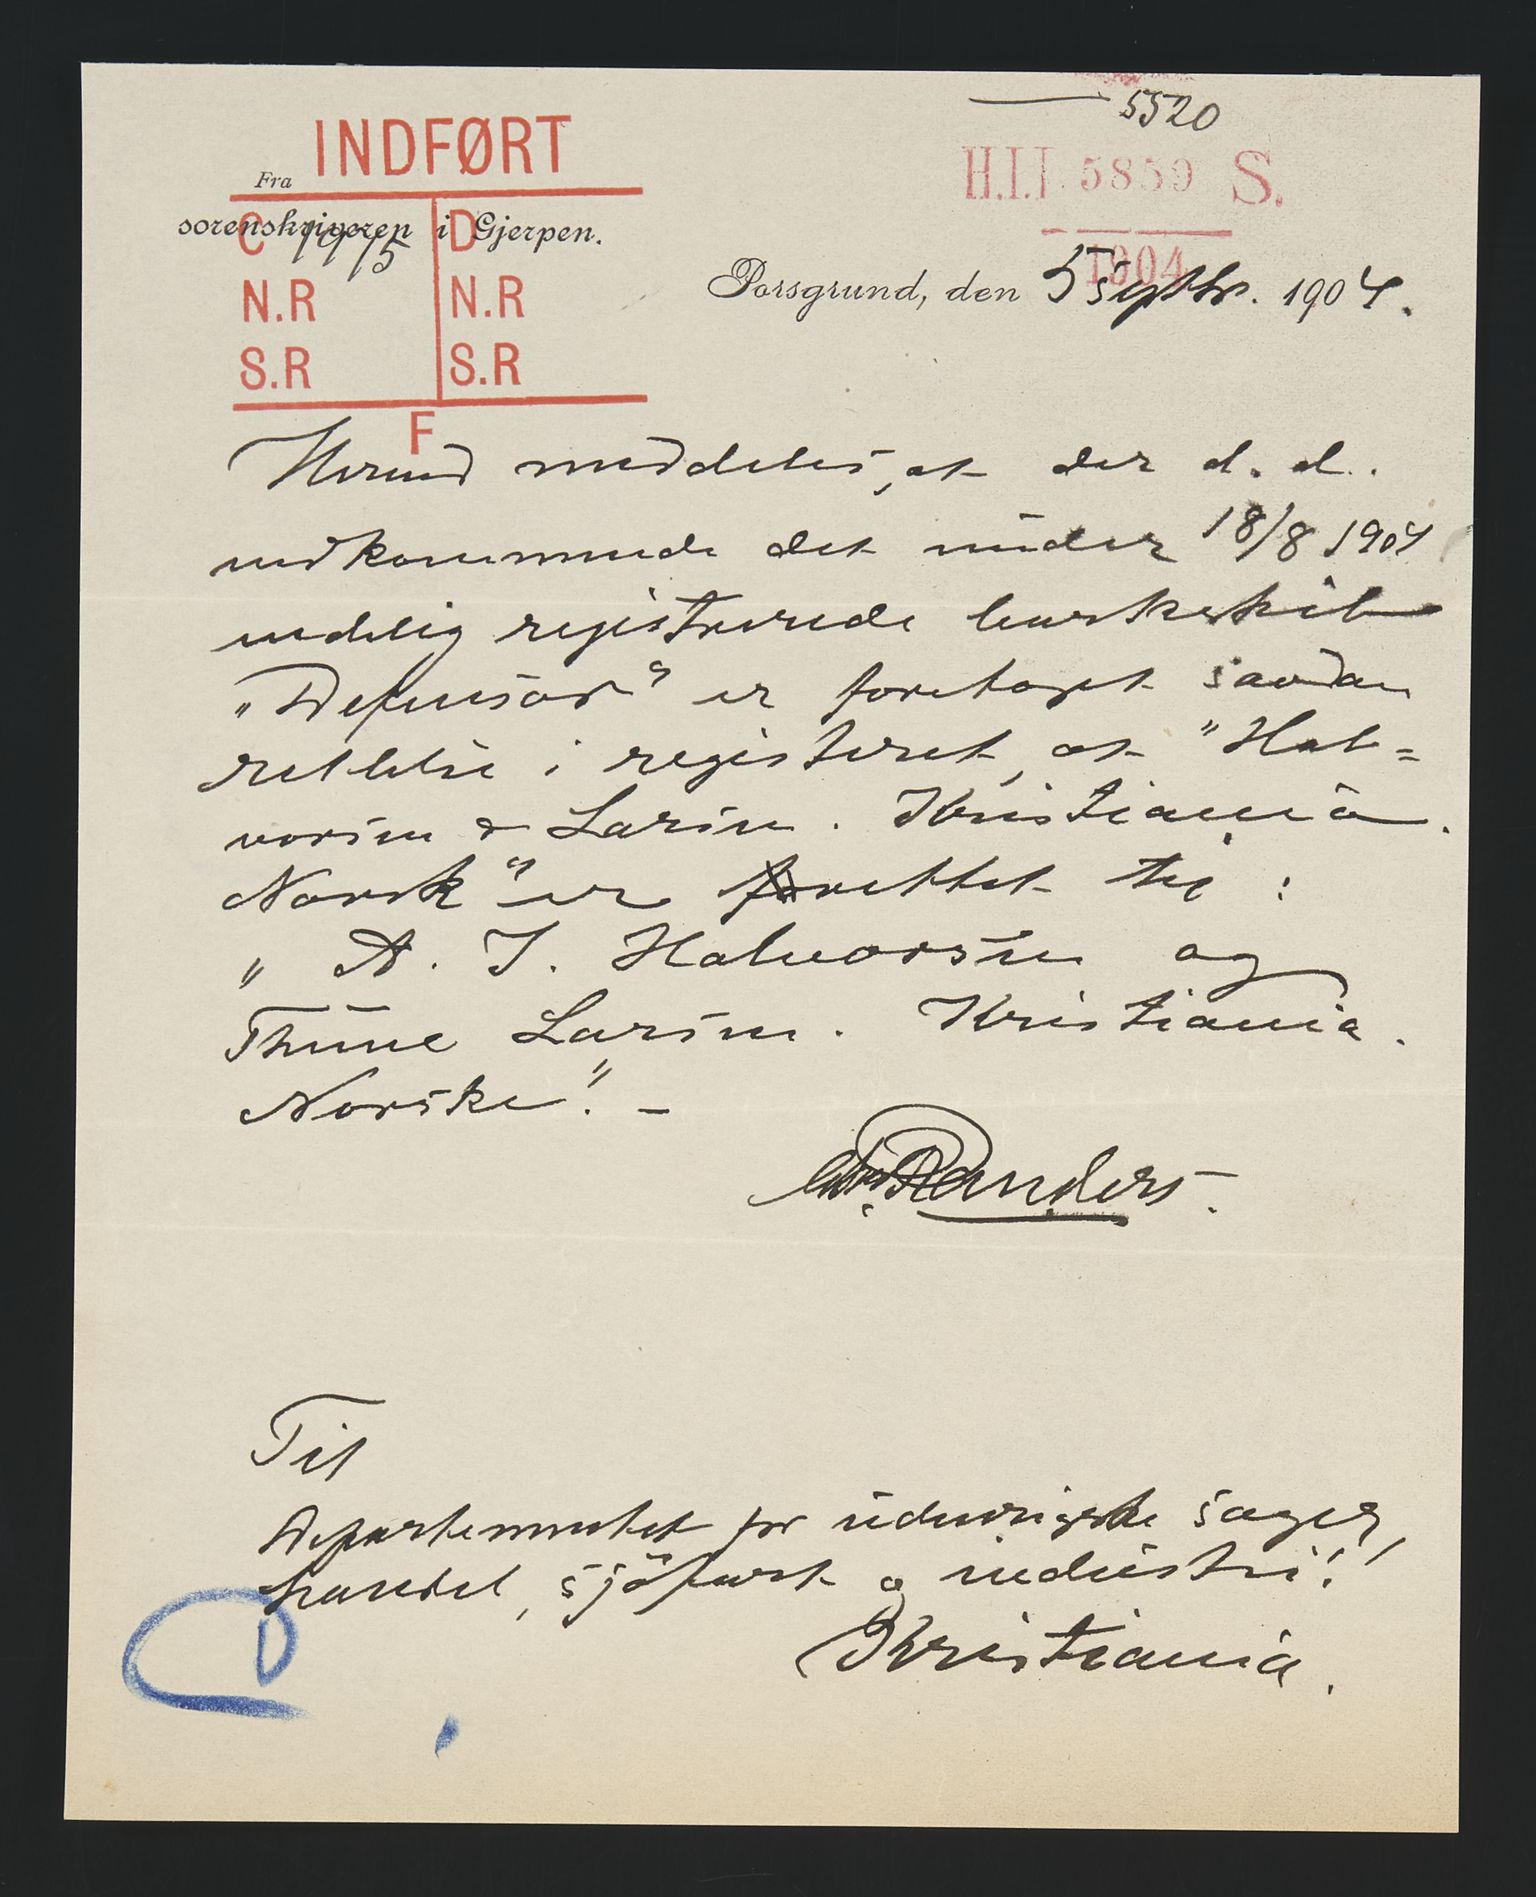 5520
INDFØRT
H.I.I 5859 S.
1904
Fra
sorenskriveren i Gjerpen.
C D
N.R N.R
S.R S.R
F
Porsgrund, den 5 Septbr. 1904.
Herved meddeles, at der d. d.
vedkommende det under 18/8 1904
endelig registrerede barkskib
„Defensor“ er foretaget saadan
rettelse i registeret, at "Hal=
vorsen & Larsen. Kristiania.
Norsk" er rettet til:
„A. I. Halvorsen og
Thune Larsen. Kristiania.
Norske". –
Randers.
Til
Departementet for udenrigske sager,
handel, sjöfart og industri!
Kristiania.